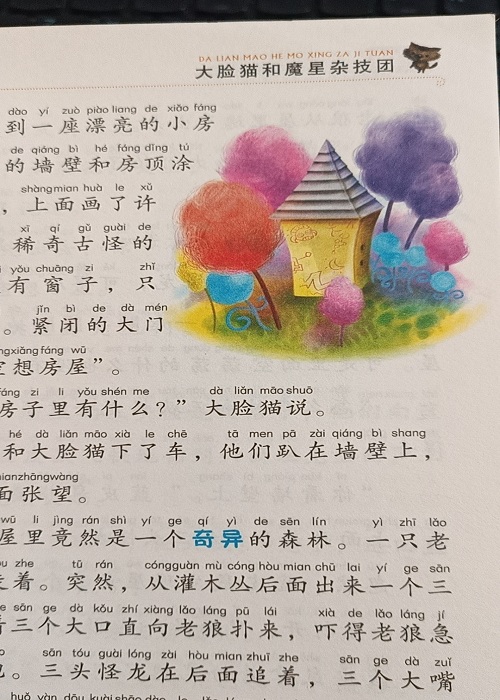 DA LIAN MAO HE MO XING ZA JI TUAN
大脸猫和魔星杂技团
dào yí zuò piào liang de xiǎo fáng
到一座漂亮的小房
de qiáng bì hé fáng dǐng tú
的墙壁和房顶涂
shàng mian huà le xǔ
，上面画了许
xī qí gǔ guài de
稀奇古怪的
yǒu chuāng zi zhǐ
有窗子，只
jǐn bì de dà mén
。紧闭的大门
xiǎng fáng wū
想房屋”。
fáng zi li yǒu shén me dà liǎn māo shuō
房子里有什么？”大脸猫说。
hé dà liǎn māo xià le chē tā men pā zài qiáng bì shang
和大脸猫下了车，他们趴在墙壁上，
mian zhāng wàng
面张望。
wū li jìng rán shì yí ge qí yì de sēn lín yì zhī lǎo
屋里竟然是一个奇异的森林。一只老
zhe tū rán cóng guàn mù cóng hòu mian chū lai yí ge sān
着。突然，从灌木丛后面出来一个三
sān ge dà kǒu zhí xiàng lǎo láng pū lái xià de lǎo láng jí
三个大口直向老狼扑来，吓得老狼急
sān tóu guài lóng zài hòu mian zhuī zhe sān ge dà zuǐ
。三头怪龙在后面追着，三个大嘴